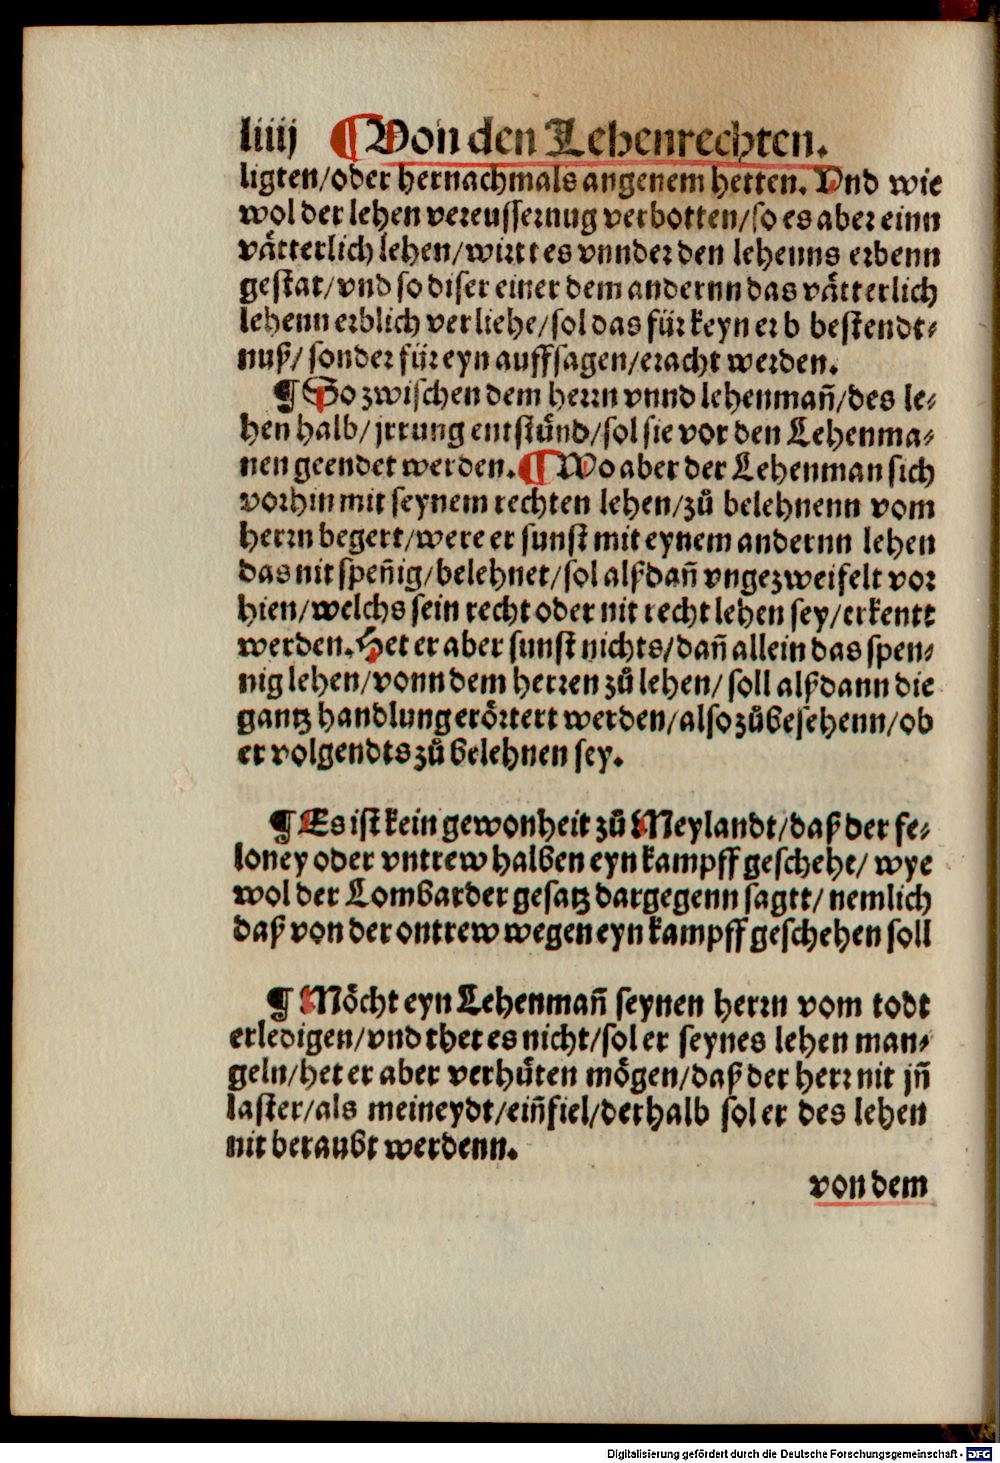 liiij ¶ Von den Lehenrechten.
ligten/oder hernachmals angenem hetten. Vnd wie
wol der lehen vereussernug verbotten/so es aber einn
vätterlich lehen/wirtt es vnnder den lehenns erbenn
gestat/vnd so diser einer dem andernn das vätterlich
lehenn erblich verliehe/sol das für keyn erb bestendt⸗
nuß/sonder für eyn auffsagen/eracht werden.
¶ So zwischen dem herrn vnnd lehenmañ/des le⸗
hen halb/jrrung entstünd/sol sie vor den Lehenma⸗
nen geendet werden. ¶ Wo aber der Lehenman sich
vorhin mit seynem rechten lehen/zů belehnenn vom
herrn begert/were er sunst mit eynem andernn lehen
das nit speñig/belehnet/sol alßdañ vngezweifelt vor
hien/welchs sein recht oder nit recht lehen sey/erkentt
werden. Het er aber sunst nichts/dañ allein das spen⸗
nig lehen/vonn dem herren zů lehen/soll alßdann die
gantz handlung erörtert werden/also zůbesehenn/ob
er volgendts zů belehnen sey.
¶ Es ist kein gewonheit zů Meylandt/daß der fe⸗
loney oder vntrew halben eyn kampff geschehe/wye
wol der Lombarder gesatz dargegenn sagtt/nemlich
daß von der ontrew wegen eyn kampff geschehen soll
¶ Möcht eyn Lehenmañ seynen herrn vom todt
erledigen/vnd thet es nicht/sol er seynes lehen man⸗
geln/het er aber verhüten mögen/daß der herr nit jñ
laster/als meineydt/eiñfiel/derhalb sol er des lehen
nit beraubt werdenn.
von dem
Digitalisierung gefördert durch die Deutsche Forschungsgemeinschaft - DFG